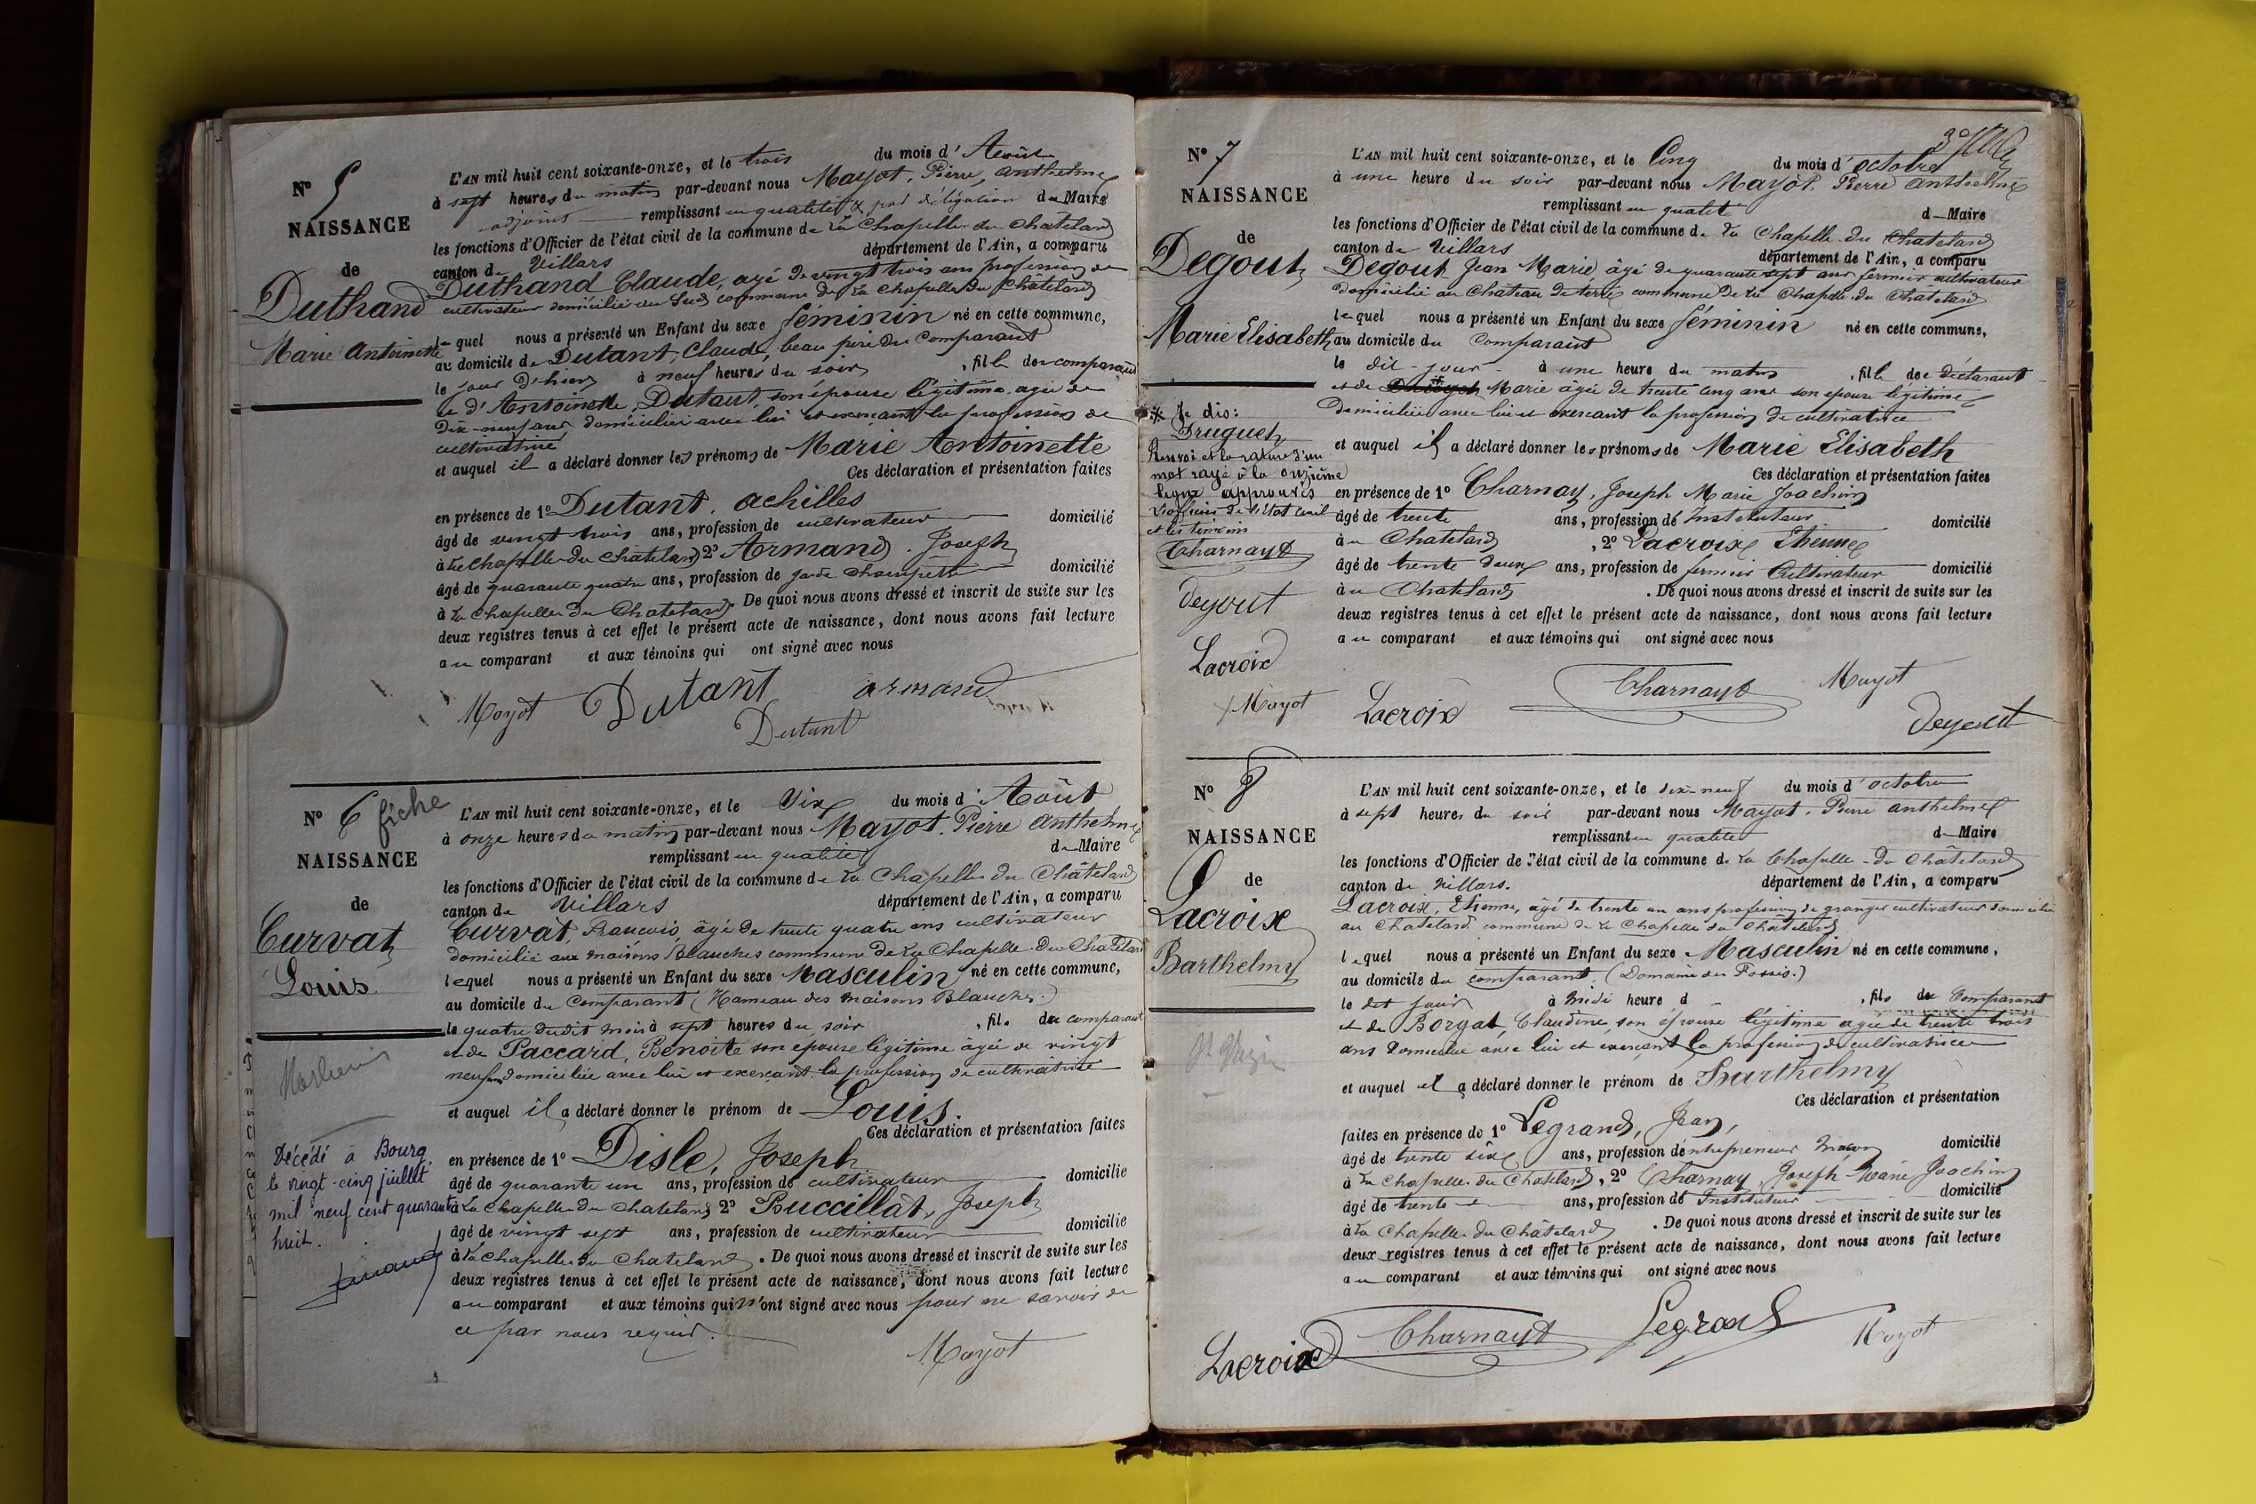 N° 5
NAISSANCE
de
Duthand
Marie Antoinette
L'AN mil huit cent soixante-onze, et le trois du mois d'Août
à sept heures du matin par-devant nous Mayot, Pierre, Anthelme
adjoint remplissant en qualité & par délégation du Maire
les fonctions d'Officier de l'état civil de la commune de La Chapelle du Châtelard
canton de Villars département de l'Ain, a comparu
Duthand Claude, agé de vingt trois ans profession de
cultivateur domicilié au Sud commune de La Chapelle du Châtelard
lequel nous a présenté un Enfant du sexe féminin né en cette commune,
au domicile de Dutant, Claude, beau père du Comparant
le jour d'hier à neuf heures du soir, fille du comparant
et d'Antoinette Dutant son épouse légitime agée de
dix-neuf ans domiciliée avec lui et exerçant la profession de
cultivatrice
et auquel il a déclaré donner les prénoms de Marie Antoinette
Ces déclaration et présentation faites
en présence de 1° Dutant, achilles
âgé de vingt trois ans, profession de cultivateur domicilié
à La Chapelle du Châtelard 2° Armand, Joseph
âgé de quarante quatre ans, profession de garde champêtre domicilié
à La Chapelle du Chatelard. De quoi nous avons dressé et inscrit de suite sur les
deux registres tenus à cet effet le présent acte de naissance, dont nous avons fait lecture
au comparant et aux témoins qui ont signé avec nous
Mayot Dutant armand
Dutant
N° 6 fiche
NAISSANCE
de
Curvat
Louis
L'AN mil huit cent soixante-onze, et le Six du mois d'Août
à onze heures du matin par-devant nous Mayot. Pierre Anthelme
remplissant en qualité de Maire
les fonctions d'Officier de l'état civil de la commune de La Chapelle du Châtelard
canton de Villars département de l'Ain, a comparu
Curvat, François âgé de trente quatre ans cultivateur
domicilié aux maisons Blanches commune de La Chapelle du Chatelard
lequel nous a présenté un Enfant du sexe Masculin né en cette commune,
au domicile du Comparant (Hameau des maisons Blanches.)
le quatre dudit mois à sept heures du soir, fils du comparant
et de Paccard, Benoite son epouse légitime âgée de vingt
neuf ans domiciliée avec lui et exerçant la profession de cultivatrice
et auquel il a déclaré donner le prénom de Louis.
Ces déclaration et présentation faites
en présence de 1° Disle, Joseph
âgé de quarante un ans, profession de cultivateur domicilié
à La Chapelle du Chatelard 2° Buccillat, Joseph
âgé de vingt sept ans, profession de cultivateur domicilié
à La Chapelle du Chatelard. De quoi nous avons dressé et inscrit de suite sur les
deux registres tenus à cet effet le présent acte de naissance, dont nous avons fait lecture
au comparant et aux témoins qui n'ont signé avec nous pour ne savoir de
ce par nous requis.
Mayot
Décédé à Bourg
le vingt-cinq juillet
mil neuf cent quarante
huit.
N° 7
NAISSANCE
de
Degout
Marie Elisabeth
* Je dis:
Druguet
Renvoi et la rature d'un
mot rayé à la onzième
ligne approuvés
L'officier de l'Etat civil
et les témoins
Charnay
degout
Lacroix
Mayot
L'AN mil huit cent soixante-onze, et le Cinq du mois d'octobre
à une heure du soir par-devant nous Mayot. Pierre Anthelme
remplissant en qualité d Maire
les fonctions d'Officier de l'état civil de la commune de La Chapelle du Chatelard
canton de Villars département de l'Ain, a comparu
Degout Jean Marie âgé de quarante sept ans fermier cultivateur
domicilié au Chateau de terre commune de La Chapelle du Chatelard
lequel nous a présenté un Enfant du sexe féminin né en cette commune,
au domicile du Comparant
le dit jour à une heure du matin, fille du déclarant
et de * Marie âgée de trente cinq ans son epouse légitime
Domiciliée avec lui et exercant la profession de cultivatrice
et auquel il a déclaré donner les prénoms de Marie Elisabeth
Ces déclaration et présentation faites
en présence de 1° Charnay, Joseph Marie Joachim
âgé de trente ans, profession de Instituteur domicilié
à u Chatelard, 2° Lacroix Etienne
âgé de trente deux ans, profession de fermier Cultivateur domicilié
à u Chatelard. De quoi nous avons dressé et inscrit de suite sur les
deux registres tenus à cet effet le présent acte de naissance, dont nous avons fait lecture
au comparant et aux témoins qui ont signé avec nous
Lacroix Charnay Mayot
degout
N° 8
NAISSANCE
de
Lacroix
Barthelmy
L'AN mil huit cent soixante-onze, et le dix-neuf du mois d'octobre
à sept heures du soir par-devant nous Mayot. Pierre Anthelme
remplissant en qualité d Maire
les fonctions d'Officier de l'état civil de la commune de La Chapelle du Châtelard
canton de Villars. département de l'Ain, a comparu
Lacroix, Etienne, âgé de trente un ans profession de granger cultivateur domicilié
au Chatelard commune de La Chapelle du Châtelard
lequel nous a présenté un Enfant du sexe Masculin né en cette commune,
au domicile du comparant
le dit jour à midi heure d, fils du Comparant
et de Borgat, Claudine, son épouse légitime agée de trente trois
ans Domiciliée avec lui et exerçant la profession de cultivatrice
et auquel il a déclaré donner le prénom de Barthelmy
Ces déclaration et présentation
faites en présence de 1° Legrand, Jean,
âgé de trente six ans, profession de entrepreneur maçon domicilié
à La Chapelle du Chatelard, 2° Charnay, Joseph-Marie Joachim
âgé de trente ans, profession de Instituteur domicilié
à La Chapelle du Châtelard. De quoi nous avons dressé et inscrit de suite sur les
deux registres tenus à cet effet le présent acte de naissance, dont nous avons fait lecture
au comparant et aux témoins qui ont signé avec nous
Lacroix Charnay Legrand Mayot